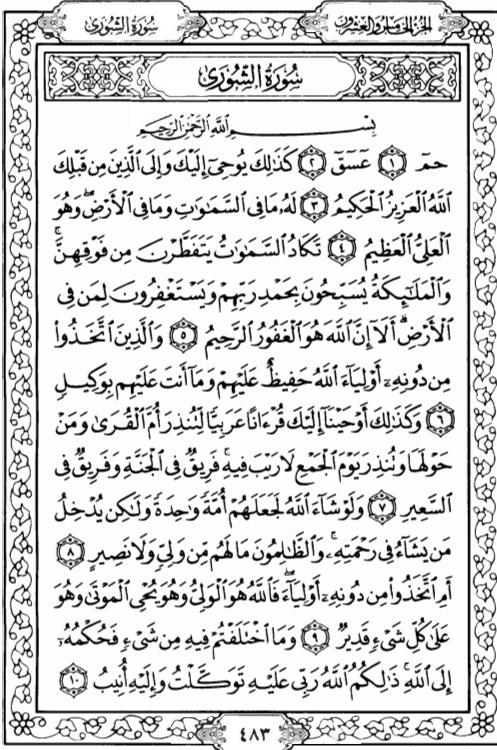 سُورَةُ الشُّورَىٰ
الجُزْءُ الخَامِسُ وَالعِشْرُونَ
سُورَةُ الشُّورَىٰ
بِسْمِ اللَّهِ الرَّحْمَٰنِ الرَّحِيمِ
حمٓ ۝١ عٓسٓقٓ ۝٢ كَذَٰلِكَ يُوحِىٓ إِلَيْكَ وَإِلَى ٱلَّذِينَ مِن قَبْلِكَ
ٱللَّهُ ٱلْعَزِيزُ ٱلْحَكِيمُ ۝٣ لَهُۥ مَا فِى ٱلسَّمَٰوَٰتِ وَمَا فِى ٱلْأَرْضِ ۖ وَهُوَ
ٱلْعَلِىُّ ٱلْعَظِيمُ ۝٤ تَكَادُ ٱلسَّمَٰوَٰتُ يَتَفَطَّرْنَ مِن فَوْقِهِنَّ ۚ
وَٱلْمَلَٰٓئِكَةُ يُسَبِّحُونَ بِحَمْدِ رَبِّهِمْ وَيَسْتَغْفِرُونَ لِمَن فِى
ٱلْأَرْضِ ۗ أَلَآ إِنَّ ٱللَّهَ هُوَ ٱلْغَفُورُ ٱلرَّحِيمُ ۝٥ وَٱلَّذِينَ ٱتَّخَذُوا۟
مِن دُونِهِۦٓ أَوْلِيَآءَ ٱللَّهُ حَفِيظٌ عَلَيْهِمْ وَمَآ أَنتَ عَلَيْهِم بِوَكِيلٍ
۝٦ وَكَذَٰلِكَ أَوْحَيْنَآ إِلَيْكَ قُرْءَانًا عَرَبِيًّا لِّتُنذِرَ أُمَّ ٱلْقُرَىٰ وَمَنْ
حَوْلَهَا وَتُنذِرَ يَوْمَ ٱلْجَمْعِ لَا رَيْبَ فِيهِ ۚ فَرِيقٌ فِى ٱلْجَنَّةِ وَفَرِيقٌ فِى
ٱلسَّعِيرِ ۝٧ وَلَوْ شَآءَ ٱللَّهُ لَجَعَلَهُمْ أُمَّةً وَٰحِدَةً وَلَٰكِن يُدْخِلُ
مَن يَشَآءُ فِى رَحْمَتِهِۦ ۚ وَٱلظَّٰلِمُونَ مَا لَهُم مِّن وَلِىٍّ وَلَا نَصِيرٍ ۝٨
أَمِ ٱتَّخَذُوا۟ مِن دُونِهِۦٓ أَوْلِيَآءَ ۖ فَٱللَّهُ هُوَ ٱلْوَلِىُّ وَهُوَ يُحْىِ ٱلْمَوْتَىٰ وَهُوَ
عَلَىٰ كُلِّ شَىْءٍ قَدِيرٌ ۝٩ وَمَا ٱخْتَلَفْتُمْ فِيهِ مِن شَىْءٍ فَحُكْمُهُۥٓ
إِلَى ٱللَّهِ ۚ ذَٰلِكُمُ ٱللَّهُ رَبِّى عَلَيْهِ تَوَكَّلْتُ وَإِلَيْهِ أُنِيبُ ۝١٠
٤٨٣